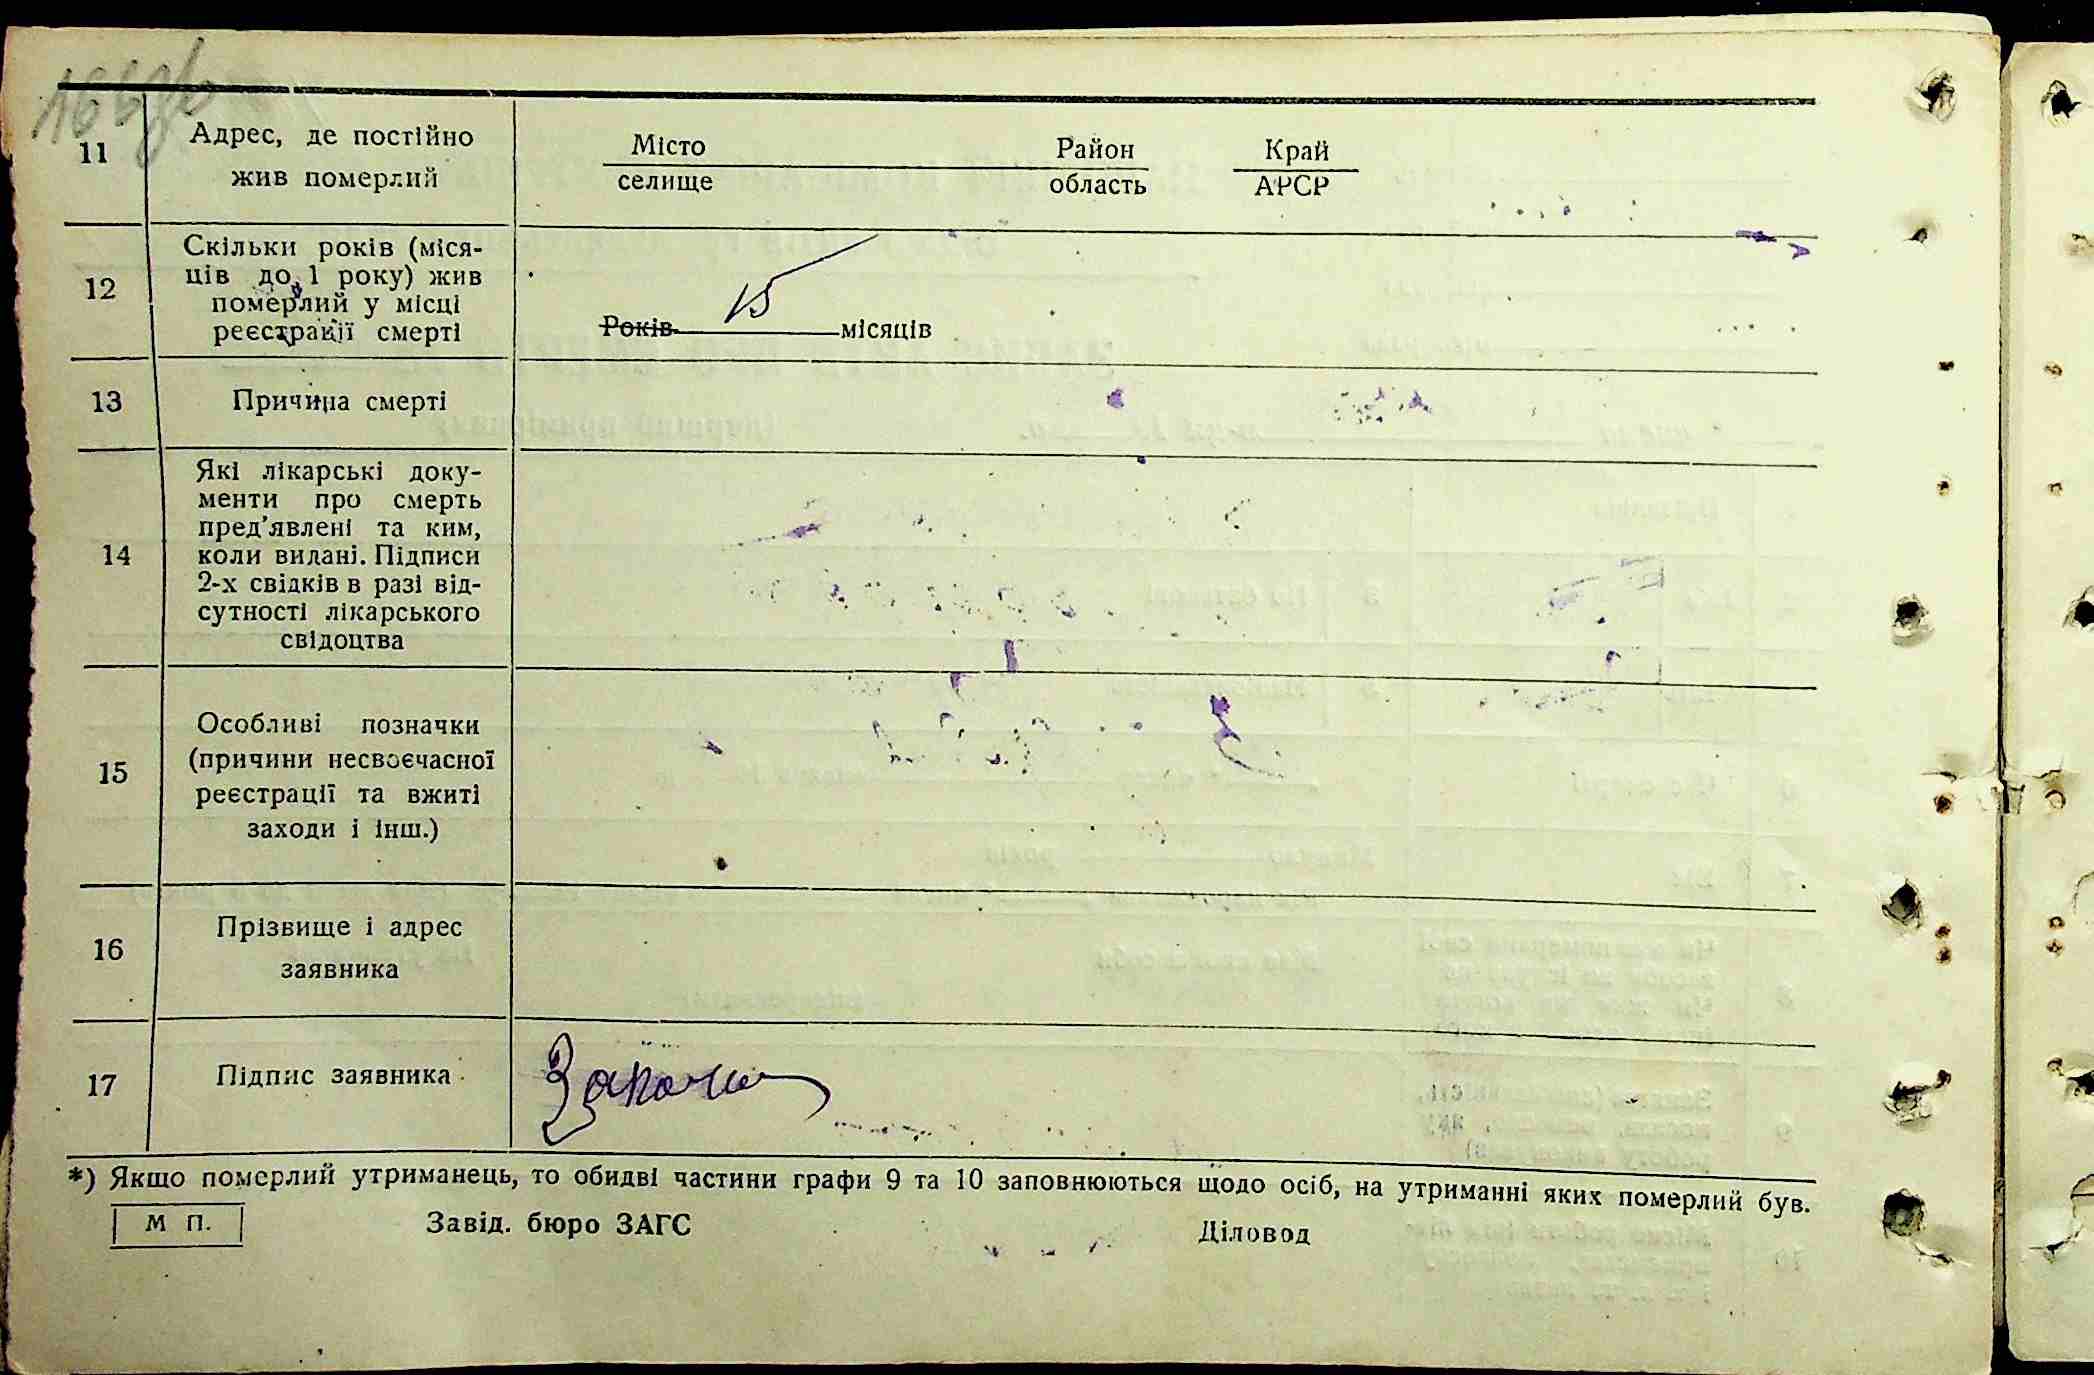 166зв
11
Адрес, де постійно
жив померлий
Місто
селище
Район
область
Край
АРСР
12
Скільки років (міся-
ців до 1 року) жив
померлий у місці
реєстрації смерті
Років 15 місяців
13
Причина смерті
14
Які лікарські доку-
менти про смерть
пред’явлені та ким,
коли видані. Підписи
2-х свідків в разі від-
сутності лікарського
свідоцтва
15
Особливі позначки
(причини несвоєчасної
реєстрації та вжиті
заходи і інш.)
16
Прізвище і адрес
заявника
17
Підпис заявника
*) Якщо померлий утриманець, то обидві частини графи 9 та 10 заповнюються щодо осіб, на утриманні яких померлий був.
М П.
Завід. бюро ЗАГС
Діловод